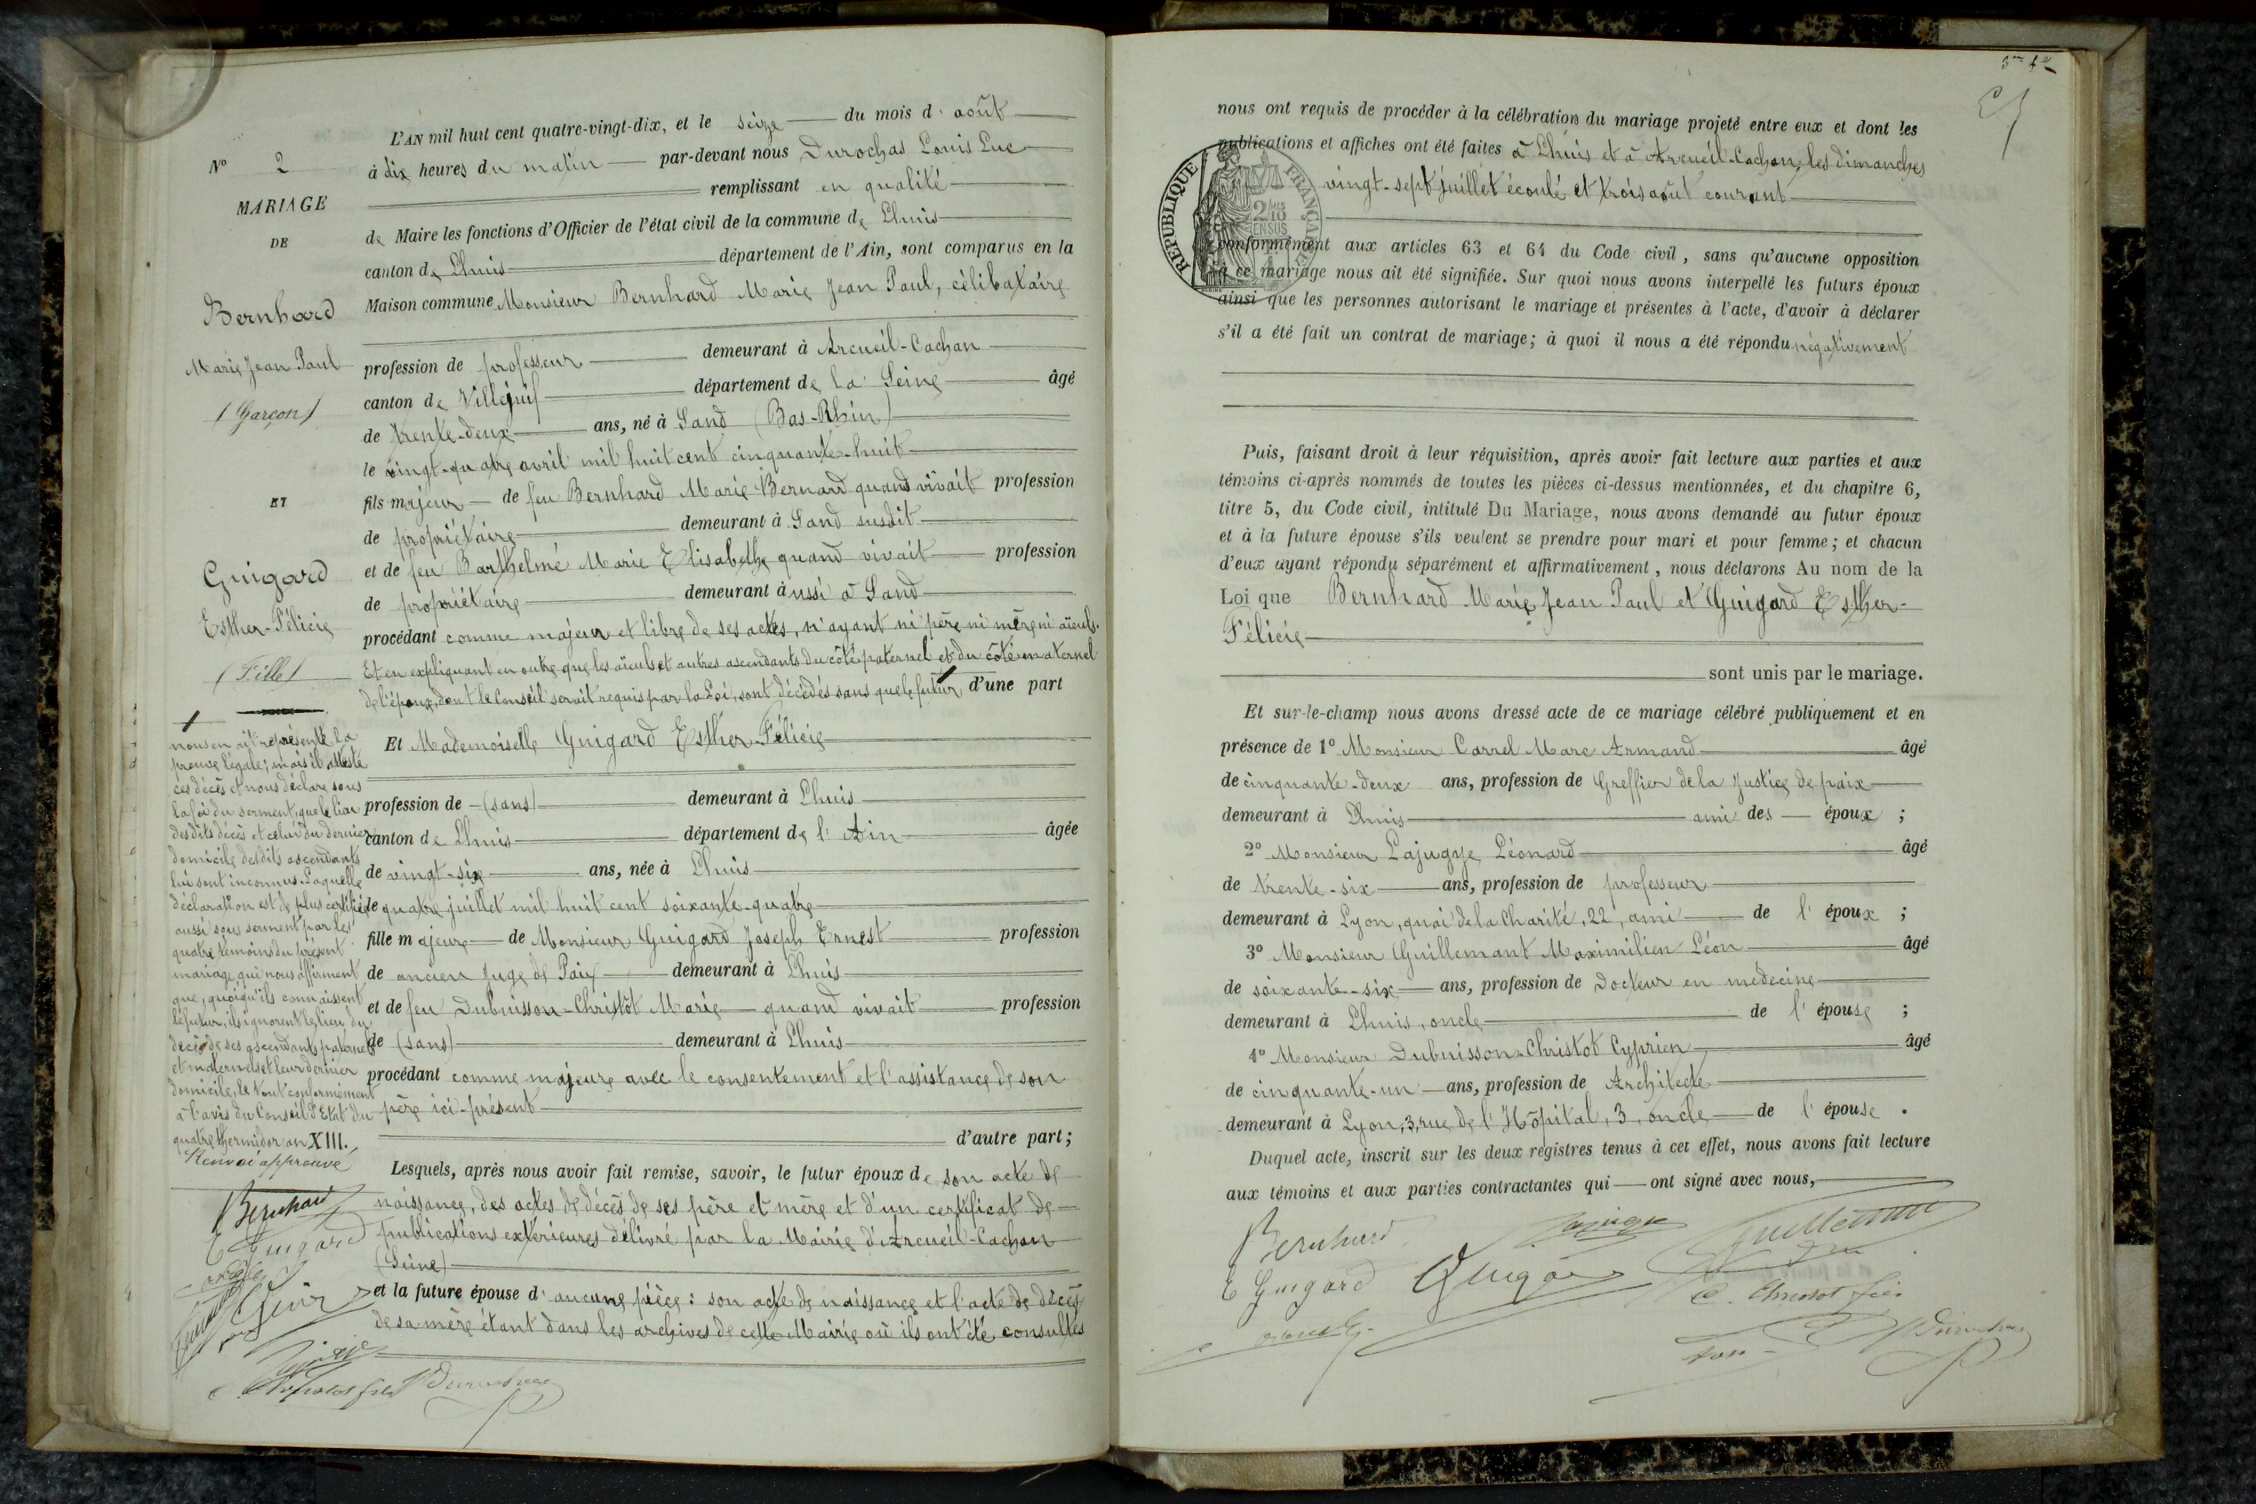 L'AN mil huit cent quatre-vingt-dix, et le seize du mois d'août
à dix heures du matin par-devant nous Durochas Louis Luc
remplissant en qualité
de Maire les fonctions d'Officier de l'état civil de la commune de Lhuis
canton de Lhuis département de l'Ain, sont comparus en la
Maison commune Monsieur Bernhard Marie Jean Paul, célibataire
profession de professeur demeurant à Arcueil-Cachan
canton de Villejuif département de la Seine âgé
de trente-deux ans, né à Sand (Bas-Rhin)
le vingt-quatre avril mil huit cent cinquante-huit
fils majeur de feu Bernhard Marie Bernard quand vivait profession
de propriétaire demeurant à Sand susdit
et de feu Barthelmé Marie Elisabethe quand vivait profession
de propriétaire demeurant aussi à Sand
procédant comme majeur et libre de ses actes, n'ayant ni père ni mère ni aïeuls.
Et en expliquant en outre que les aïeuls et autres ascendants du côté paternel et du côté maternel
de l'époux, dont le Conseil serait requis par la Loi, sont décédés sans que le futur d'une part
Et Mademoiselle Guigard Esther Félicie
profession de (sans) demeurant à Lhuis
canton de Lhuis département de l'Ain âgée
de vingt-six ans, née à Lhuis
le quatre juillet mil huit cent soixante-quatre
fille majeure de Monsieur Guigard Joseph Ernest profession
de ancien juge de Paix demeurant à Lhuis
et de feu Dubuisson-Christôt Marie quand vivait profession
de (sans) demeurant à Lhuis
procédant comme majeure avec le consentement et l'assistance de son
père ici-présent
d'autre part;
Lesquels, après nous avoir fait remise, savoir, le futur époux de son acte de
naissance, des actes de décès de ses père et mère et d'un certificat de
publications extérieures délivré par la Mairie d'Arcueil-Cachan
(Seine)
et la future épouse d'aucune pièce: son acte de naissance et l'acte de décès
de sa mère étant dans les archives de cette Mairie où ils ont été consultés
N° 2
MARIAGE
DE
Bernhard
Marie Jean Paul
(Garçon)
ET
Guigard
Esther-Félicie
(Fille)
nous en ait représenté la
preuve légale; mais il atteste
ces décès et nous déclare sous
la foi du serment, que le lieu
desdits décès et celui du dernier
domicile desdits ascendants
lui sont inconnus. Laquelle
déclaration est de plus certifiée
aussi sous serment par les
quatre témoins du présent
mariage qui nous affirment
que, quoiqu'ils connaissent
le futur, ils ignorent le lieu du
décès de ses ascendants paternels
et maternels et leur dernier
domicile, le tout conformément
à l'avis du Conseil d'Etat du
quatre thermidor an XIII.
Renvoi approuvé
Bernhard
E Guigard
C. Christot fils Durochas
nous ont requis de procéder à la célébration du mariage projeté entre eux et dont les
publications et affiches ont été faites à Lhuis et à Arcueil-Cachan, les dimanches
vingt-sept juillet écoulé et trois août courant
RÉPUBLIQUE FRANÇAISE
conformément aux articles 63 et 64 du Code civil, sans qu'aucune opposition
à ce mariage nous ait été signifiée. Sur quoi nous avons interpellé les futurs époux
ainsi que les personnes autorisant le mariage et présentes à l'acte, d'avoir à déclarer
s'il a été fait un contrat de mariage; à quoi il nous a été répondu négativement
Puis, faisant droit à leur réquisition, après avoir fait lecture aux parties et aux
témoins ci-après nommés de toutes les pièces ci-dessus mentionnées, et du chapitre 6,
titre 5, du Code civil, intitulé Du Mariage, nous avons demandé au futur époux
et à la future épouse s'ils veulent se prendre pour mari et pour femme; et chacun
d'eux ayant répondu séparément et affirmativement, nous déclarons Au nom de la
Loi que Bernhard Marie Jean Paul et Guigard Esther-
Félicie
sont unis par le mariage.
Et sur-le-champ nous avons dressé acte de ce mariage célébré publiquement et en
présence de 1° Monsieur Carrel Marc Armand âgé
de cinquante-deux ans, profession de Greffier de la Justice de paix
demeurant à Lhuis ami des époux ;
2° Monsieur Lajugye Léonard âgé
de trente-six ans, profession de professeur
demeurant à Lyon, quai de la Charité, 22, ami de l'époux ;
3° Monsieur Guillemant Maximilien Léon âgé
de soixante-six ans, profession de Docteur en medecine
demeurant à Lhuis, oncle de l'épouse ;
4° Monsieur Dubuisson-Christot Cyprien âgé
de cinquante-un ans, profession de Architecte
demeurant à Lyon, 3, rue de l'Hôpital, 3, oncle de l'épouse.
Duquel acte, inscrit sur les deux registres tenus à cet effet, nous avons fait lecture
aux témoins et aux parties contractantes qui ont signé avec nous,
Bernhard Lajugye Guillemant
E Guigard Guigard C. Christot fils
Durochas